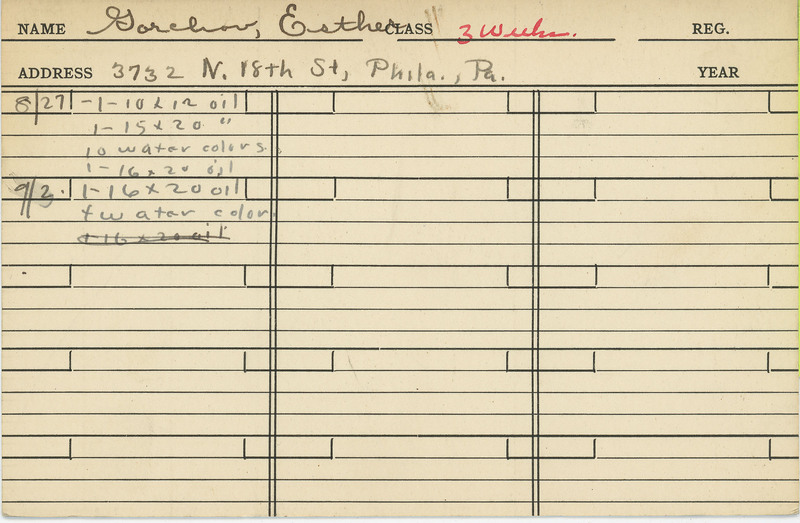 NAME Gorchov, Esther CLASS 3 Weeks. REG.
ADDRESS 3732 N. 18th St, Phila., Pa. YEAR
8/27 - 1 - 10 x 12 oil
1 - 15 x 20 "
10 water colors.
1 - 16 x 20 oil
9/3. 1 - 16 x 20 oil
4 water color
1 16 x 20 oil